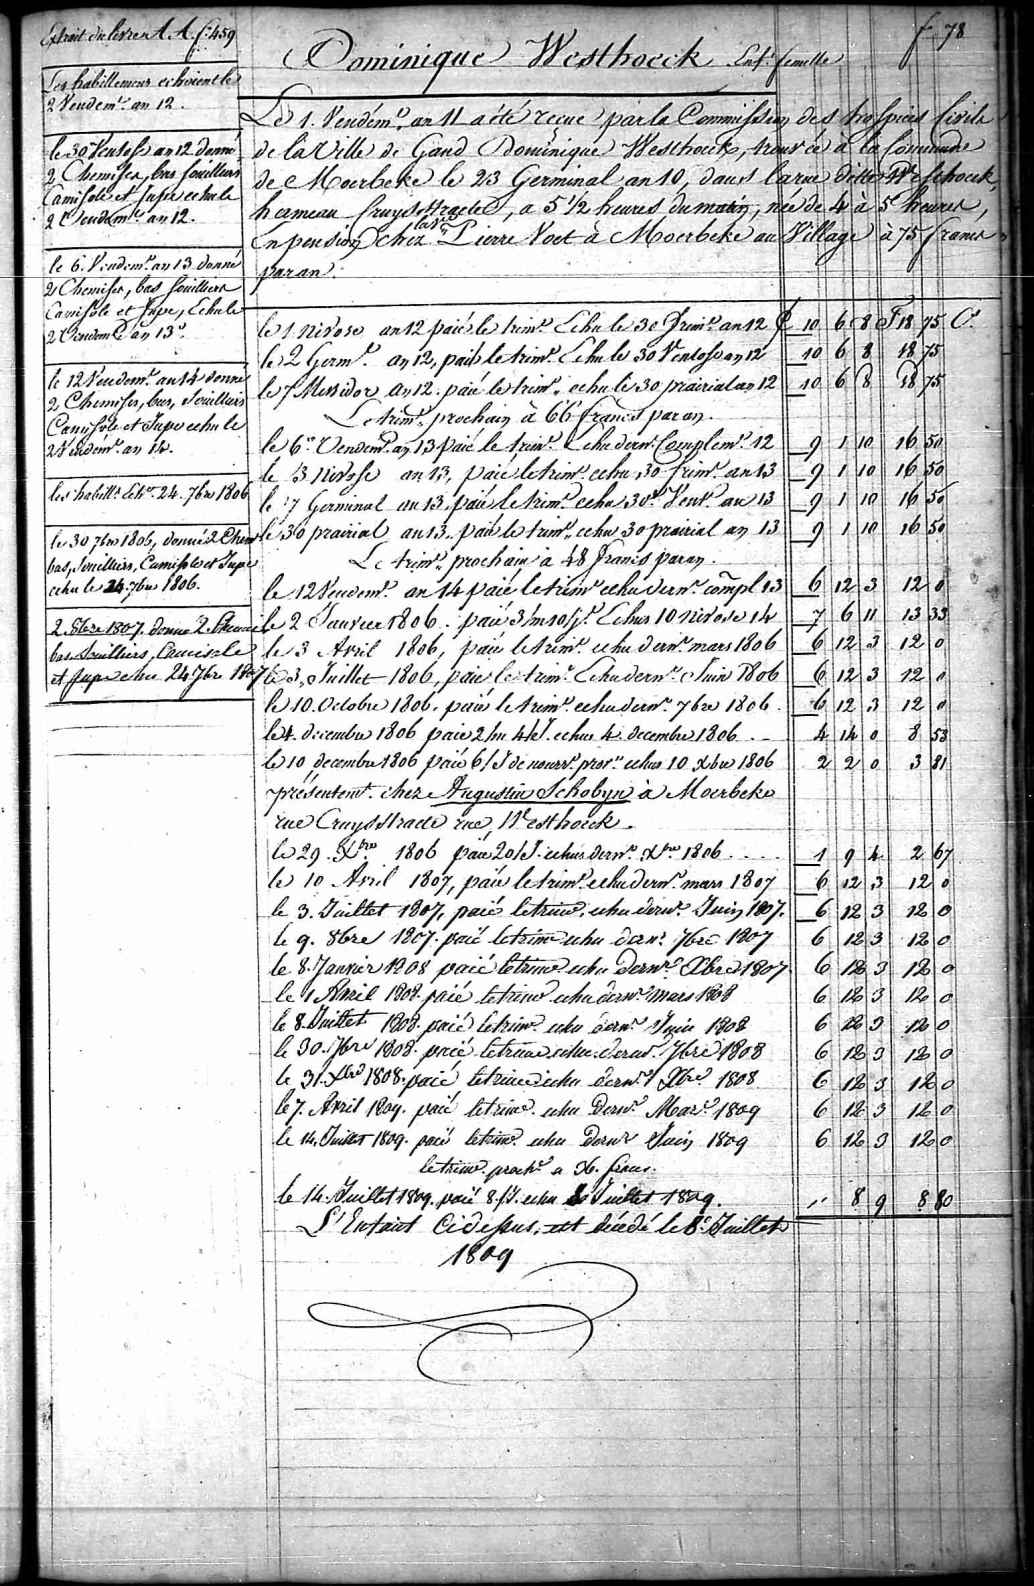 Extrait du livre A. A. f.º 459
f. 78
Dominique Westhoeck Enf.t femelle
Les habillemens echoient le
2 Vendem.re an 12.
le 30 Ventose an 12 donné
2 Chemises, bas souilliers
Camisole et Jupe echu le
2 Vendem.re an 12.
le 6. Vendem.re an 13 donné
2 Chemises, bas souilliers
Camisole et Jupe, Echu le
2 Vendem.re an 13.
le 12 Vendem.re an 14 donné
2 Chemises, bas, souilliers
Camisole et Jupe echu le
2 Vendém.re an 14.
les habill.s Ech.t 24. 7bre 1806
le 30 7bre 1806, donné 2 Chem
bas, souilliers, Camisole et Jupe
echu le 24 7bre 1806.
2 8bre 1807. donné 2 Chemis
bas souilliers, Camisole
et Jupe echu 24 7bre 1807
Le 1. Vendém.re an 11 a été reçue par la Commission des hospices Civils
de la Ville de Gand Dominique Westhoeck, trouvée à la Commune
de Moerbeke le 23 Germinal an 10, dans la rue ditte Westhoeck,
hameau Cruysstraete, a 5 1/2 heures du matin, née de 4 à 5 heures,
En pension chez la Ve Pierre Voet à Moerbeke au Village à 75 francs
par an.
le 1 Nivose an 12 paié le trim.e Echu le 30 frim.e an 12 £ 10 6 8 F 18 75 C.s
le 2 Germ.l an 12, paié le trim.e Echu le 30 Ventose an 12 10 6 8 18 75
le 7 Messidor an 12. paié le trim.e echu le 30 prairial an 12 10 6 8 18 75
Le trim.e prochain à 66 francs par an.
le 6.e Vendem.re an 13 paié le trim.e Echu dern.r Complem.re 12 9 1 10 16 50
le 3 Nivose an 13, paié le trim.e echu 30 frim.e an 13 9 1 10 16 50
le 7 Germinal an 13 paié le trim.e echu 30 Vent.e an 13 9 1 10 16 50
le 30 prairial an 13. paié le trim.e echu 30 prairial an 13 9 1 10 16 50
Le trim.e prochain à 48 francs par an.
le 12 Vendem.re an 14 paié le trim.e echu dern.r compl 13 6 12 3 12 0
le 2 Janvier 1806. paié 3/m 10/j.s Echus 10 nivose 14 7 6 11 13 33
le 3 Avril 1806, paié le trim.e echu dern.r mars 1806 6 12 3 12 0
le 3, Juillet 1806, paié le trim.e Echu dern.r Juin 1806 6 12 3 12 0
le 10. Octobre 1806. paié le trim.e echu dern.r 7bre 1806. 6 12 3 12 0
le 4. decembre 1806 paié 2/m 4/J. echus 4. decembre 1806. 4 14 0 8 53
le 10 decembre 1806 paié 6/J de nourr.e prov.re echus 10 Xbre 1806 2 2 0 3 81
présentem.t chez Augustin Schobyn à Moerbeke
rue Cruysstraete rue, Westhoeck.
le 29. Xbre 1806 paié 20/J. echus dern.r Xbre 1806 1 9 4 2 67
le 10 Avril 1807, paié le trim.e echu dern.r mars 1807 6 12 3 12 0
le 3. Juillet 1807, paié le trim.e echu dern.r Juin 1807. 6 12 3 12 0
le 9. 8bre 1807. paié le trim.e echu dern.r 7bre 1807 6 12 3 12 0
le 8. Janvier 1808 paié le trim.e echu dern.r Xbre 1807 6 12 3 12 0
le 1 Avril 1808. paié le trim.e echu dern.r mars 1808 6 12 3 12 0
le 8. Juillet 1808. paié le trim.e echu dern.r Juin 1808 6 12 3 12 0
le 30. 7bre 1808. paié le trim.e echu dern.r 7bre 1808 6 12 3 12 0
le 31. Xbre 1808. paié le trim.e echu dern.r Xbre 1808 6 12 3 12 0
le 7. Avril 1809. paié le trim.e echu dern.r Mars 1809 6 12 3 12 0
le 14. Juillet 1809. paié le trim.e echu dern.r Juin 1809 6 12 3 12 0
le trim.e proch.n a 36. francs.
le 14. Juillet 1809. paié 8./J. echu 8 Juillet 1809. " 8 9 8 80
L'Enfant Cidessus, est décédé le 8. Juillet
1809